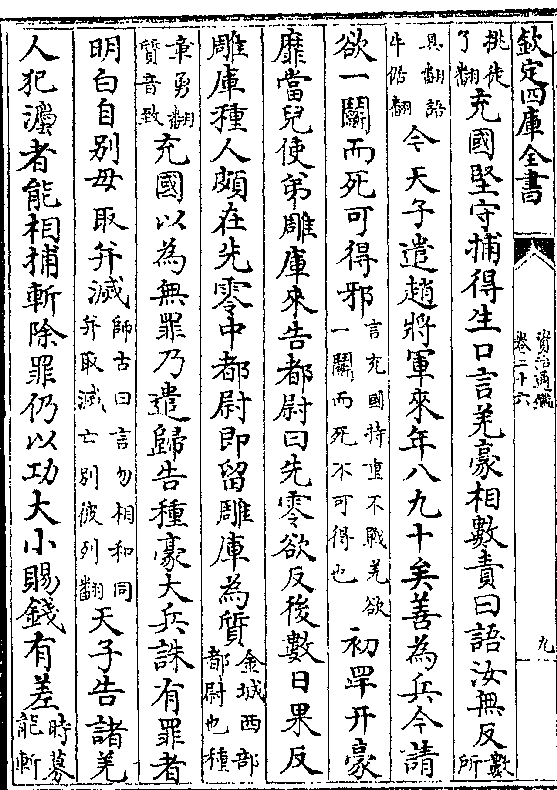 欽定四庫全書
資治通鑑
卷二十六
九
挑徒
了翻
充國堅守捕得生口言羌豪相數責曰語汝無反
數所
具翻語
牛倨翻
今天子遣趙將軍來年八九十矣善為兵今請
欲一鬭而死可得邪
言充國持重不戰羌欲
一鬭而死不可得也
初䍐幵豪
靡當兒使弟雕庫來告都尉曰先零欲反後數日果反
雕庫種人頗在先零中都尉即留雕庫為質
金城西部
都尉也種
章勇翻
質音致
充國以為無罪乃遣歸告種豪大兵誅有罪者
明白自别毋取并滅
師古曰言勿相和同
并取滅亡别彼列翻
天子告諸羌
人犯灋者能相捕斬除罪仍以功大小賜錢有差
時募
能斬